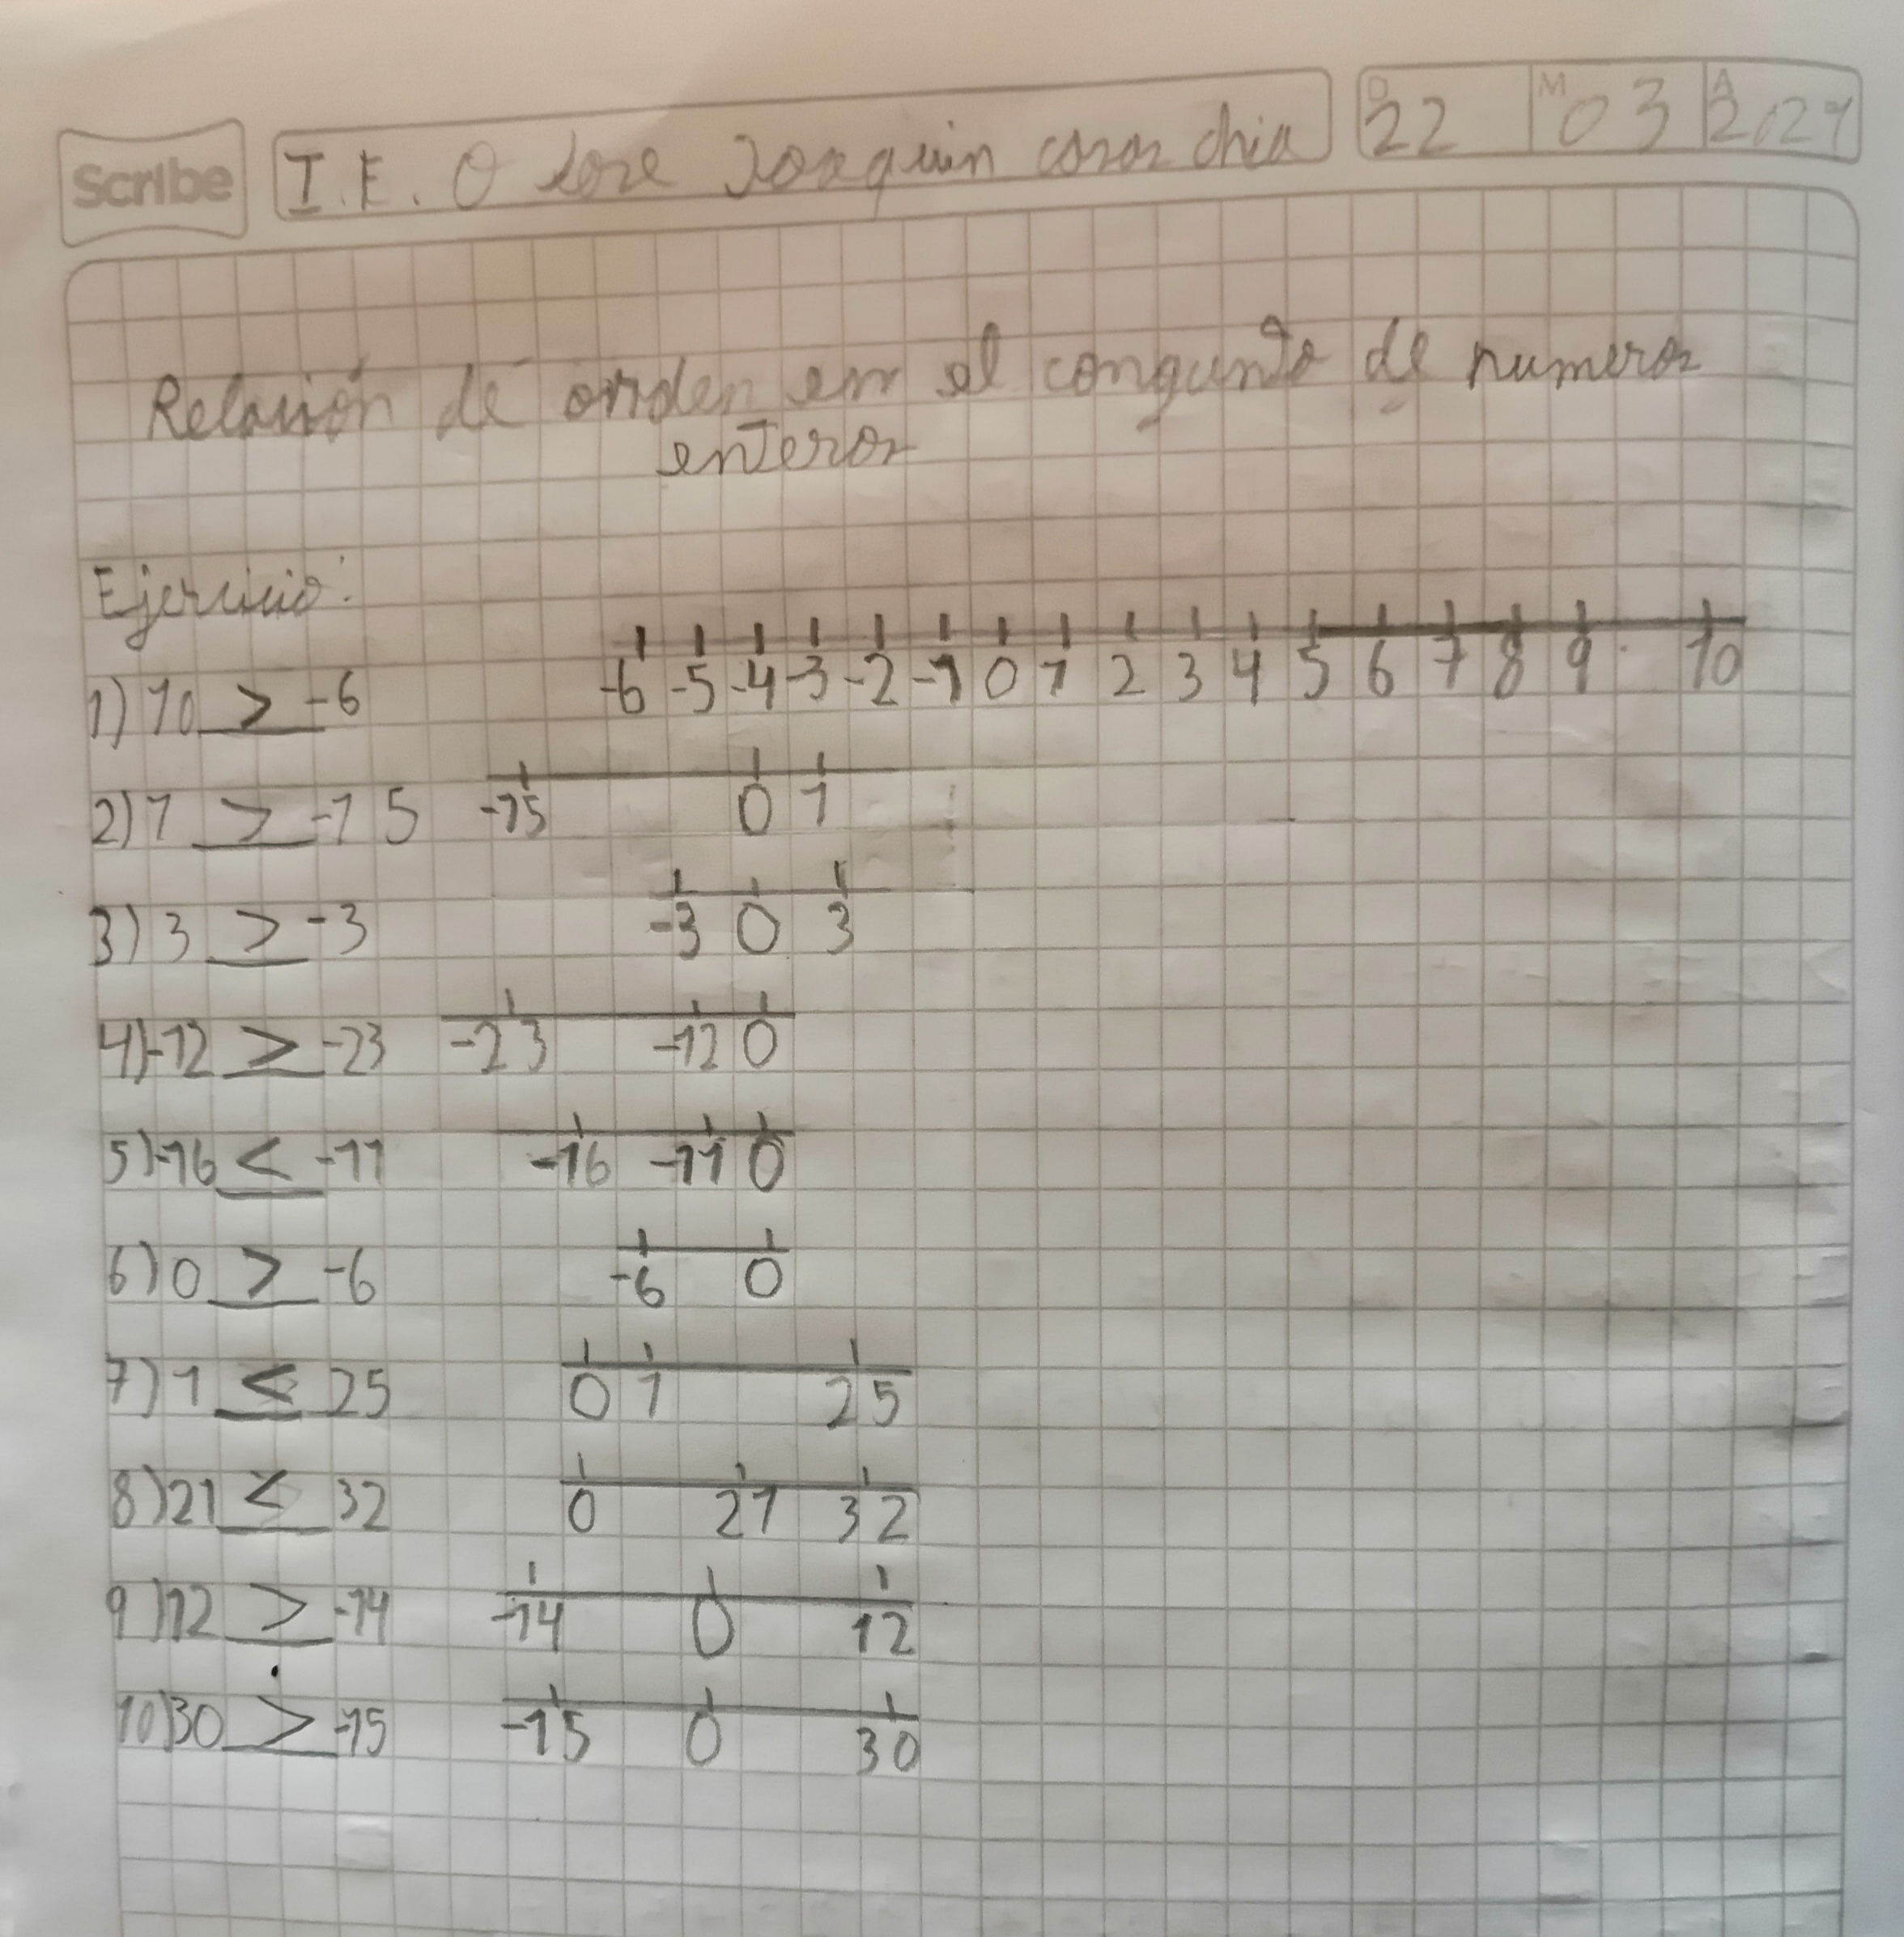 Scribe
I.E. O Jose Joaquin casas chia
D 22 M 03 A 2021
Relación de orden en el congunto de numeros
enteros
Ejercicio:
-6 -5 -4 -3 -2 -1 0 1 2 3 4 5 6 7 8 9 10
1) 10 > -6
2) 1 > -15 -15 0 1
3) 3 > -3 -3 0 3
4) -12 > -23 -23 -12 0
5) -16 < -11 -16 -11 0
6) 0 > -6 -6 0
7) 1 < 25 0 1 25
8) 21 < 32 0 21 32
9) 12 > -14 -14 0 12
10) 30 > -15 -15 0 30